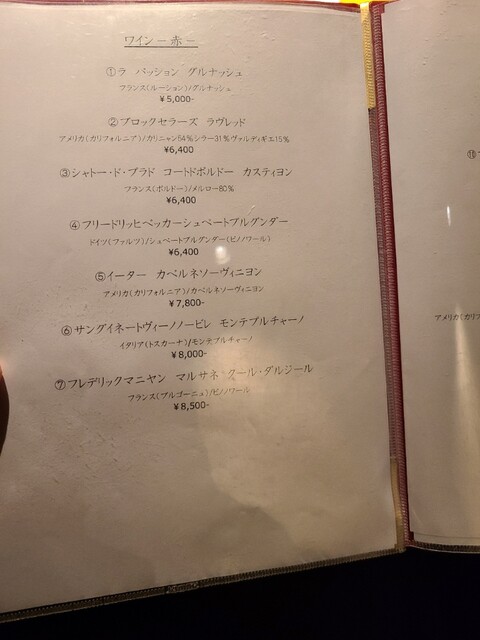 ワイン－赤－
①ラ　パッション　グルナッシュ
フランス(ルーション)/グルナッシュ
¥5,000-
②ブロックセラーズ　ラヴレッド
アメリカ(カリフォルニア)/カリニャン54%シラー31%ヴァルディギエ15%
¥6,400
③シャトー・ド・プラド　コートドボルドー　カスティヨン
フランス(ボルドー)/メルロー80%
¥6,400
④フリードリッヒベッカーシュペートブルグンダー
ドイツ(ファルツ)/シュペートブルグンダー(ピノノワール)
¥6,400
⑤イーター　カベルネソーヴィニヨン
アメリカ(カリフォルニア)/カベルネソーヴィニヨン
¥7,800-
⑥サングイネートヴィーノノービレ　モンテプルチャーノ
イタリア(トスカーナ)/モンテプルチャーノ
¥8,000-
⑦フレデリックマニャン　マルサネ クール・ダルジール
フランス(ブルゴーニュ)/ピノノワール
¥8,500-
アメリカ(カリフ